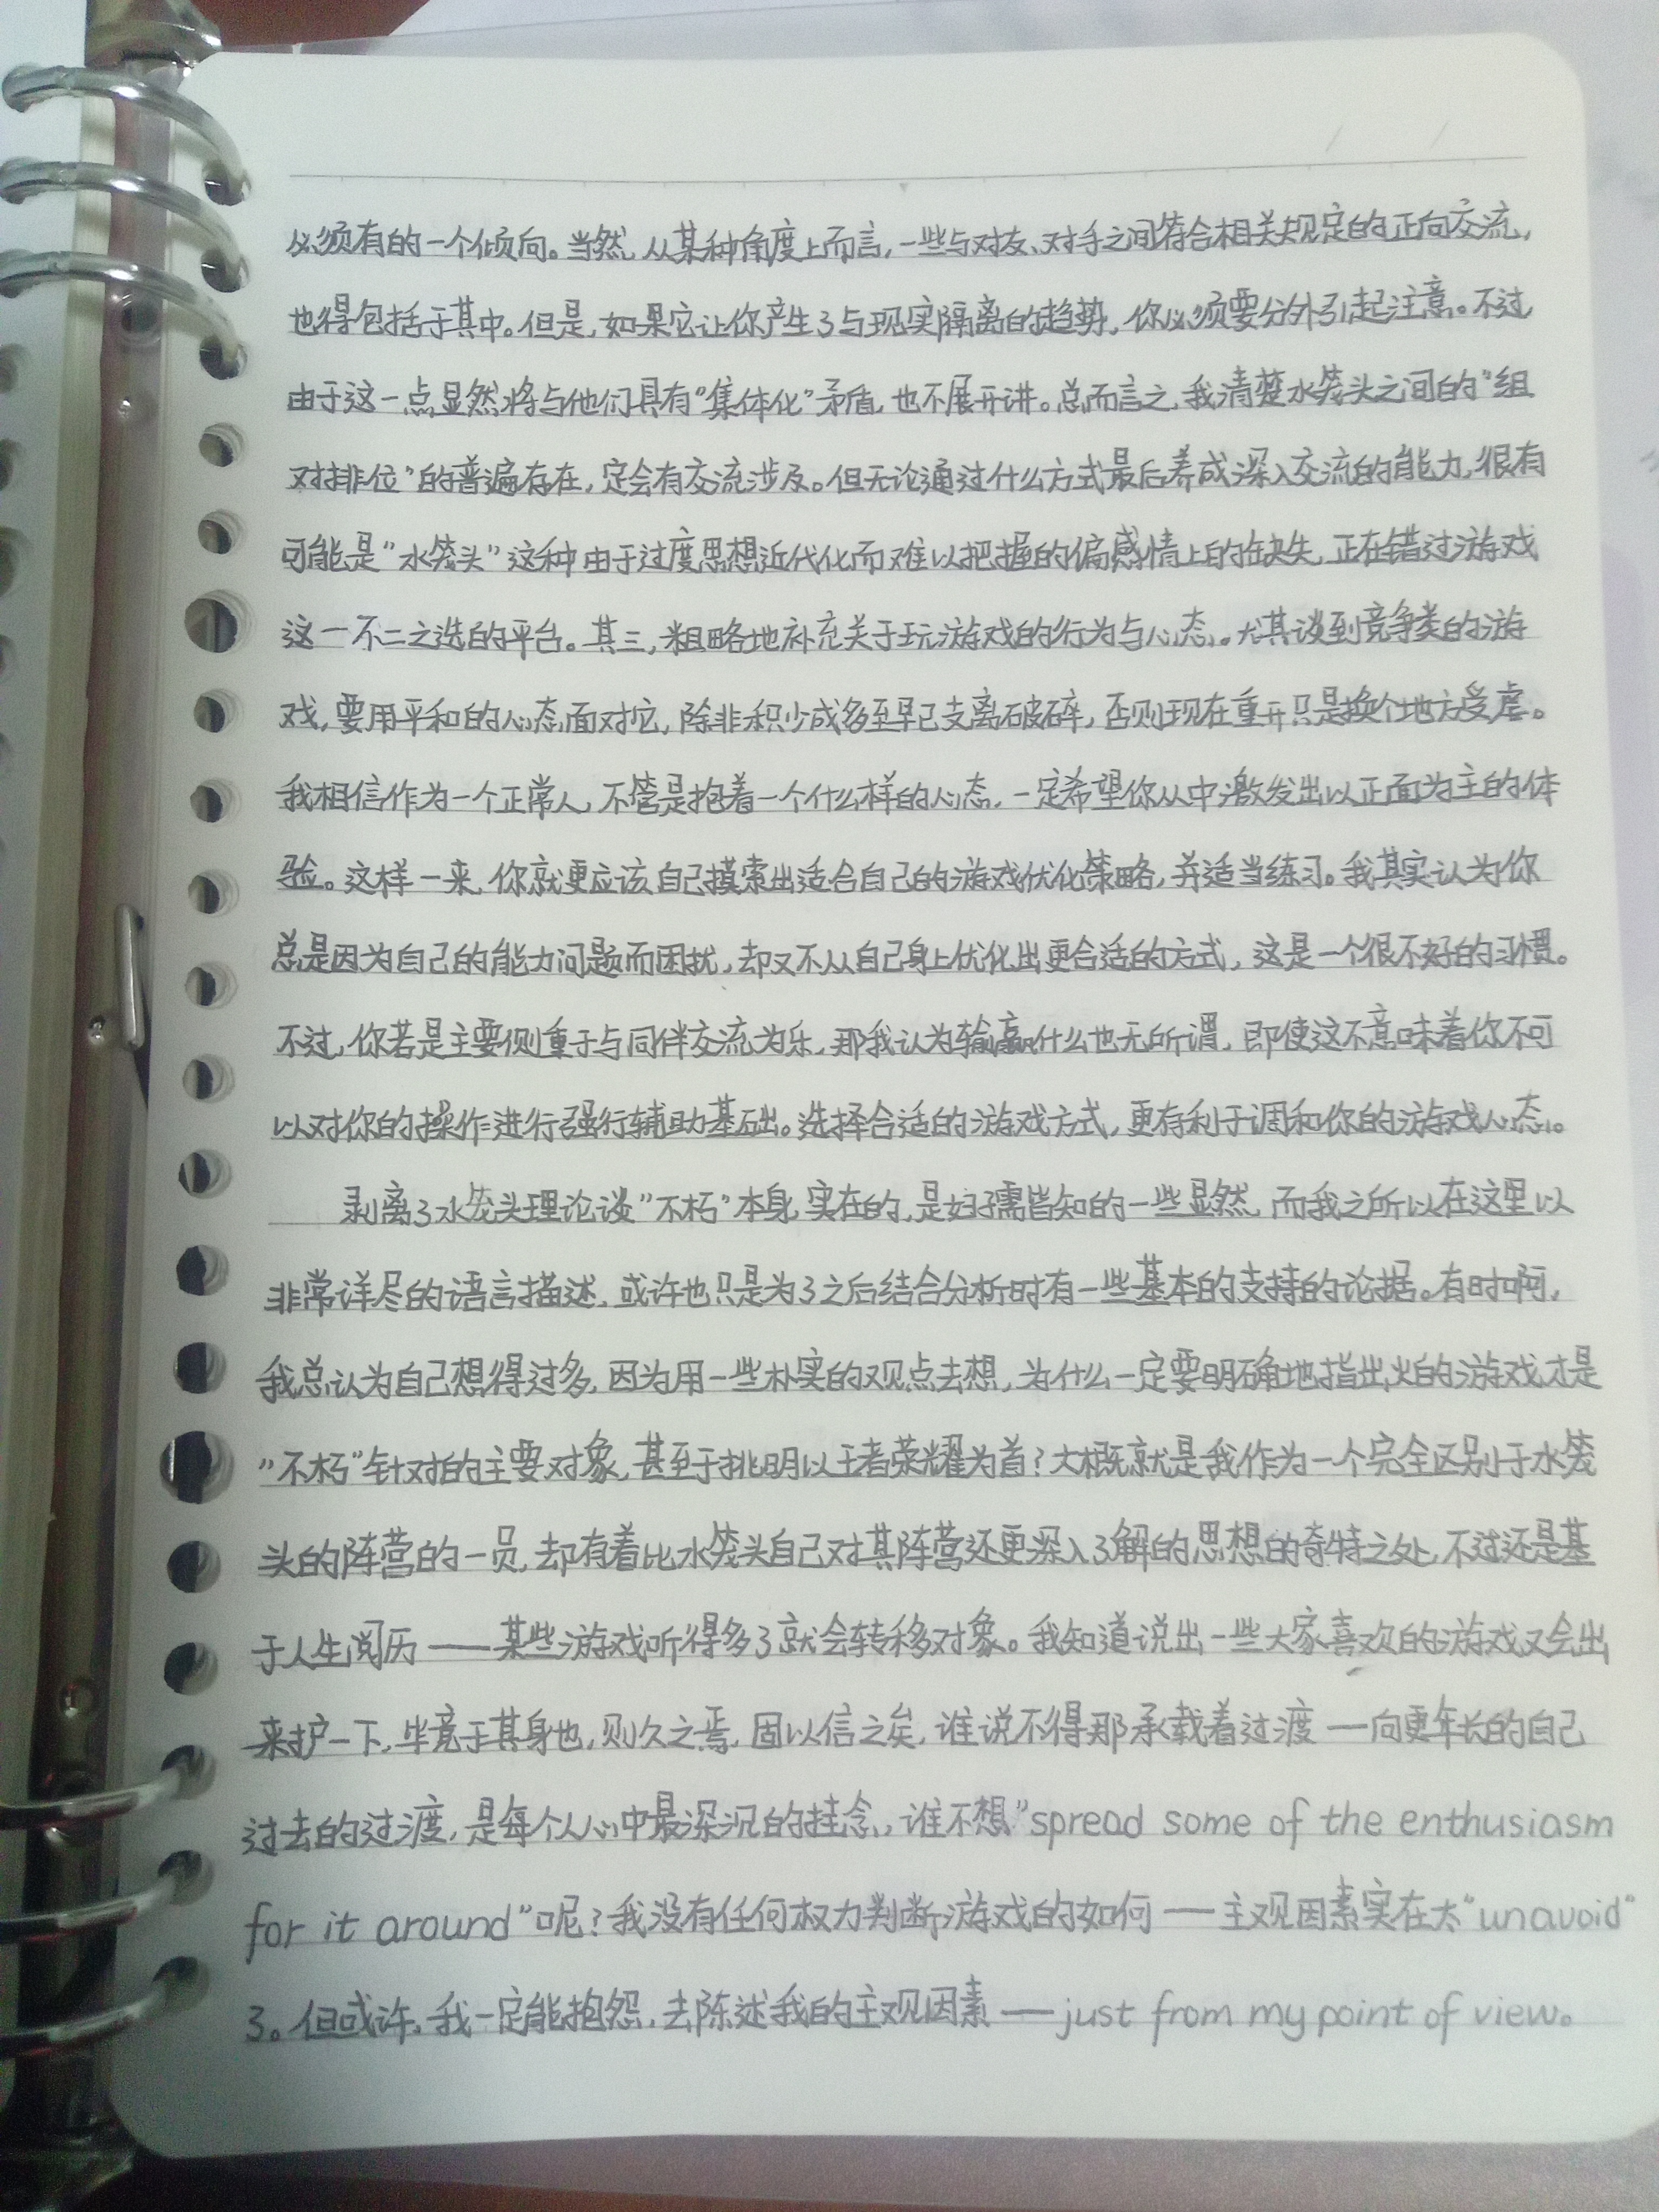 必须有的一个倾向。当然,从某种角度上而言,一些与对友、对手之间符合相关规定的正向交流,
也得包括于其中。但是,如果它让你产生了与现实隔离的趋势,你必须要分外引起注意。不过
由于这一点显然将与他们具有“集体化”矛盾,也不展开讲。总而言之,我清楚水笼头之间的“组
对排位”的普遍存在,定会有交流涉及。但无论通过什么方式最后养成深入交流的能力,很有
可能是“水笼头”这种由于过度思想近代化而难以把握的偏感情上的缺失,正在错过游戏
这一不二之选的平台。其三,粗略地补充关于玩游戏的行为与心态。尤其谈到竞争类的游
戏,要用平和的心态面对它,除非积少成多至早已支离破碎,否则现在重开只是换个地方受虐。
我相信作为一个正常人,不管是抱着一个什么样的心态,一定希望你从中激发出以正面为主的体
验。这样一来,你就更应该自己摸索出适合自己的游戏优化策略,并适当练习。我其实认为你
总是因为自己的能力问题而困扰,却又不从自己身上优化出更合适的方式,这是一个很不好的习惯。
不过,你若是主要侧重于与同伴交流为乐,那我认为输赢什么也无所谓,即使这不意味着你不可
以对你的操作进行强行辅助基础。选择合适的游戏方式,更有利于调和你的游戏心态。
剥离了水笼头理论谈“不朽”本身,实在的,是妇孺皆知的一些显然,而我之所以在这里以
非常详尽的语言描述,或许也只是为了之后结合分析时有一些基本的支持的论据。有时啊,
我总认为自己想得过多,因为用一些朴实的观点去想,为什么一定要明确地指出火的游戏才是
“不朽”针对的主要对象,甚至于挑明以王者荣耀为首?大概就是我作为一个完全区别于水笼
头的阵营的一员,却有着比水笼头自己对其阵营还更深入了解的思想的奇特之处,不过还是基
于人生阅历——某些游戏听得多了就会转移对象。我知道说出一些大家喜欢的游戏又会出
来护一下,毕竟于其身也,则久之焉,固以信之矣,谁说不得那承载着过渡——向更年长的自己
过去的过渡,是每个人心中最深沉的挂念,谁不想“spread some of the enthusiasm
for it around”呢?我没有任何权力判断游戏的如何——主观因素实在太“unavoid”
了。但或许,我一定能抱怨,去陈述我的主观因素——just from my point of view。